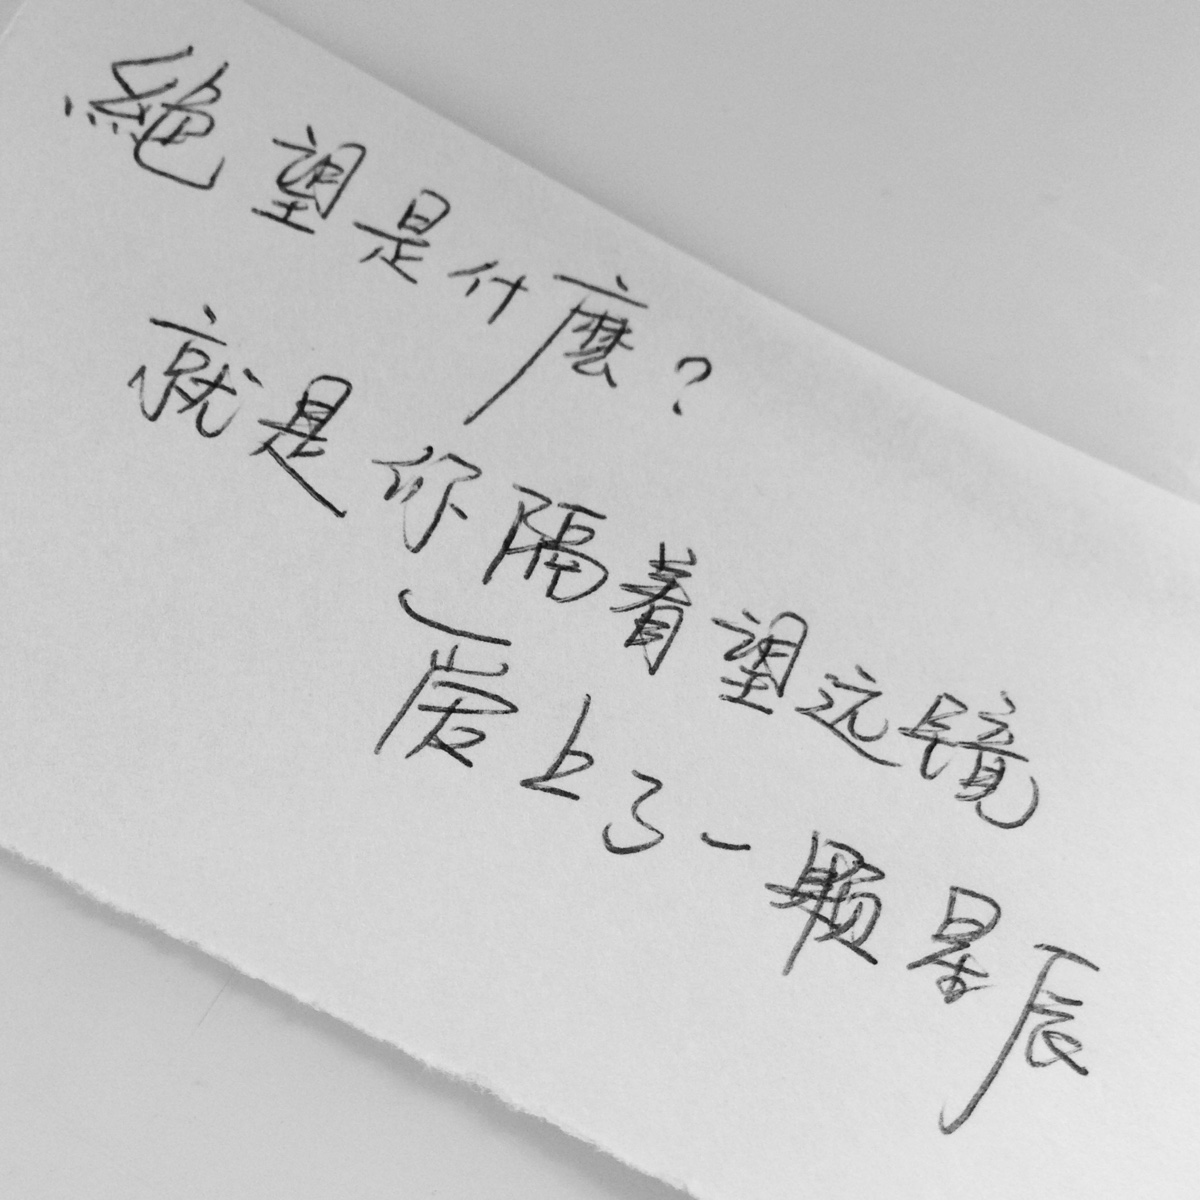 絕望是什麽？
就是你隔着望远镜
爱上了一颗星辰